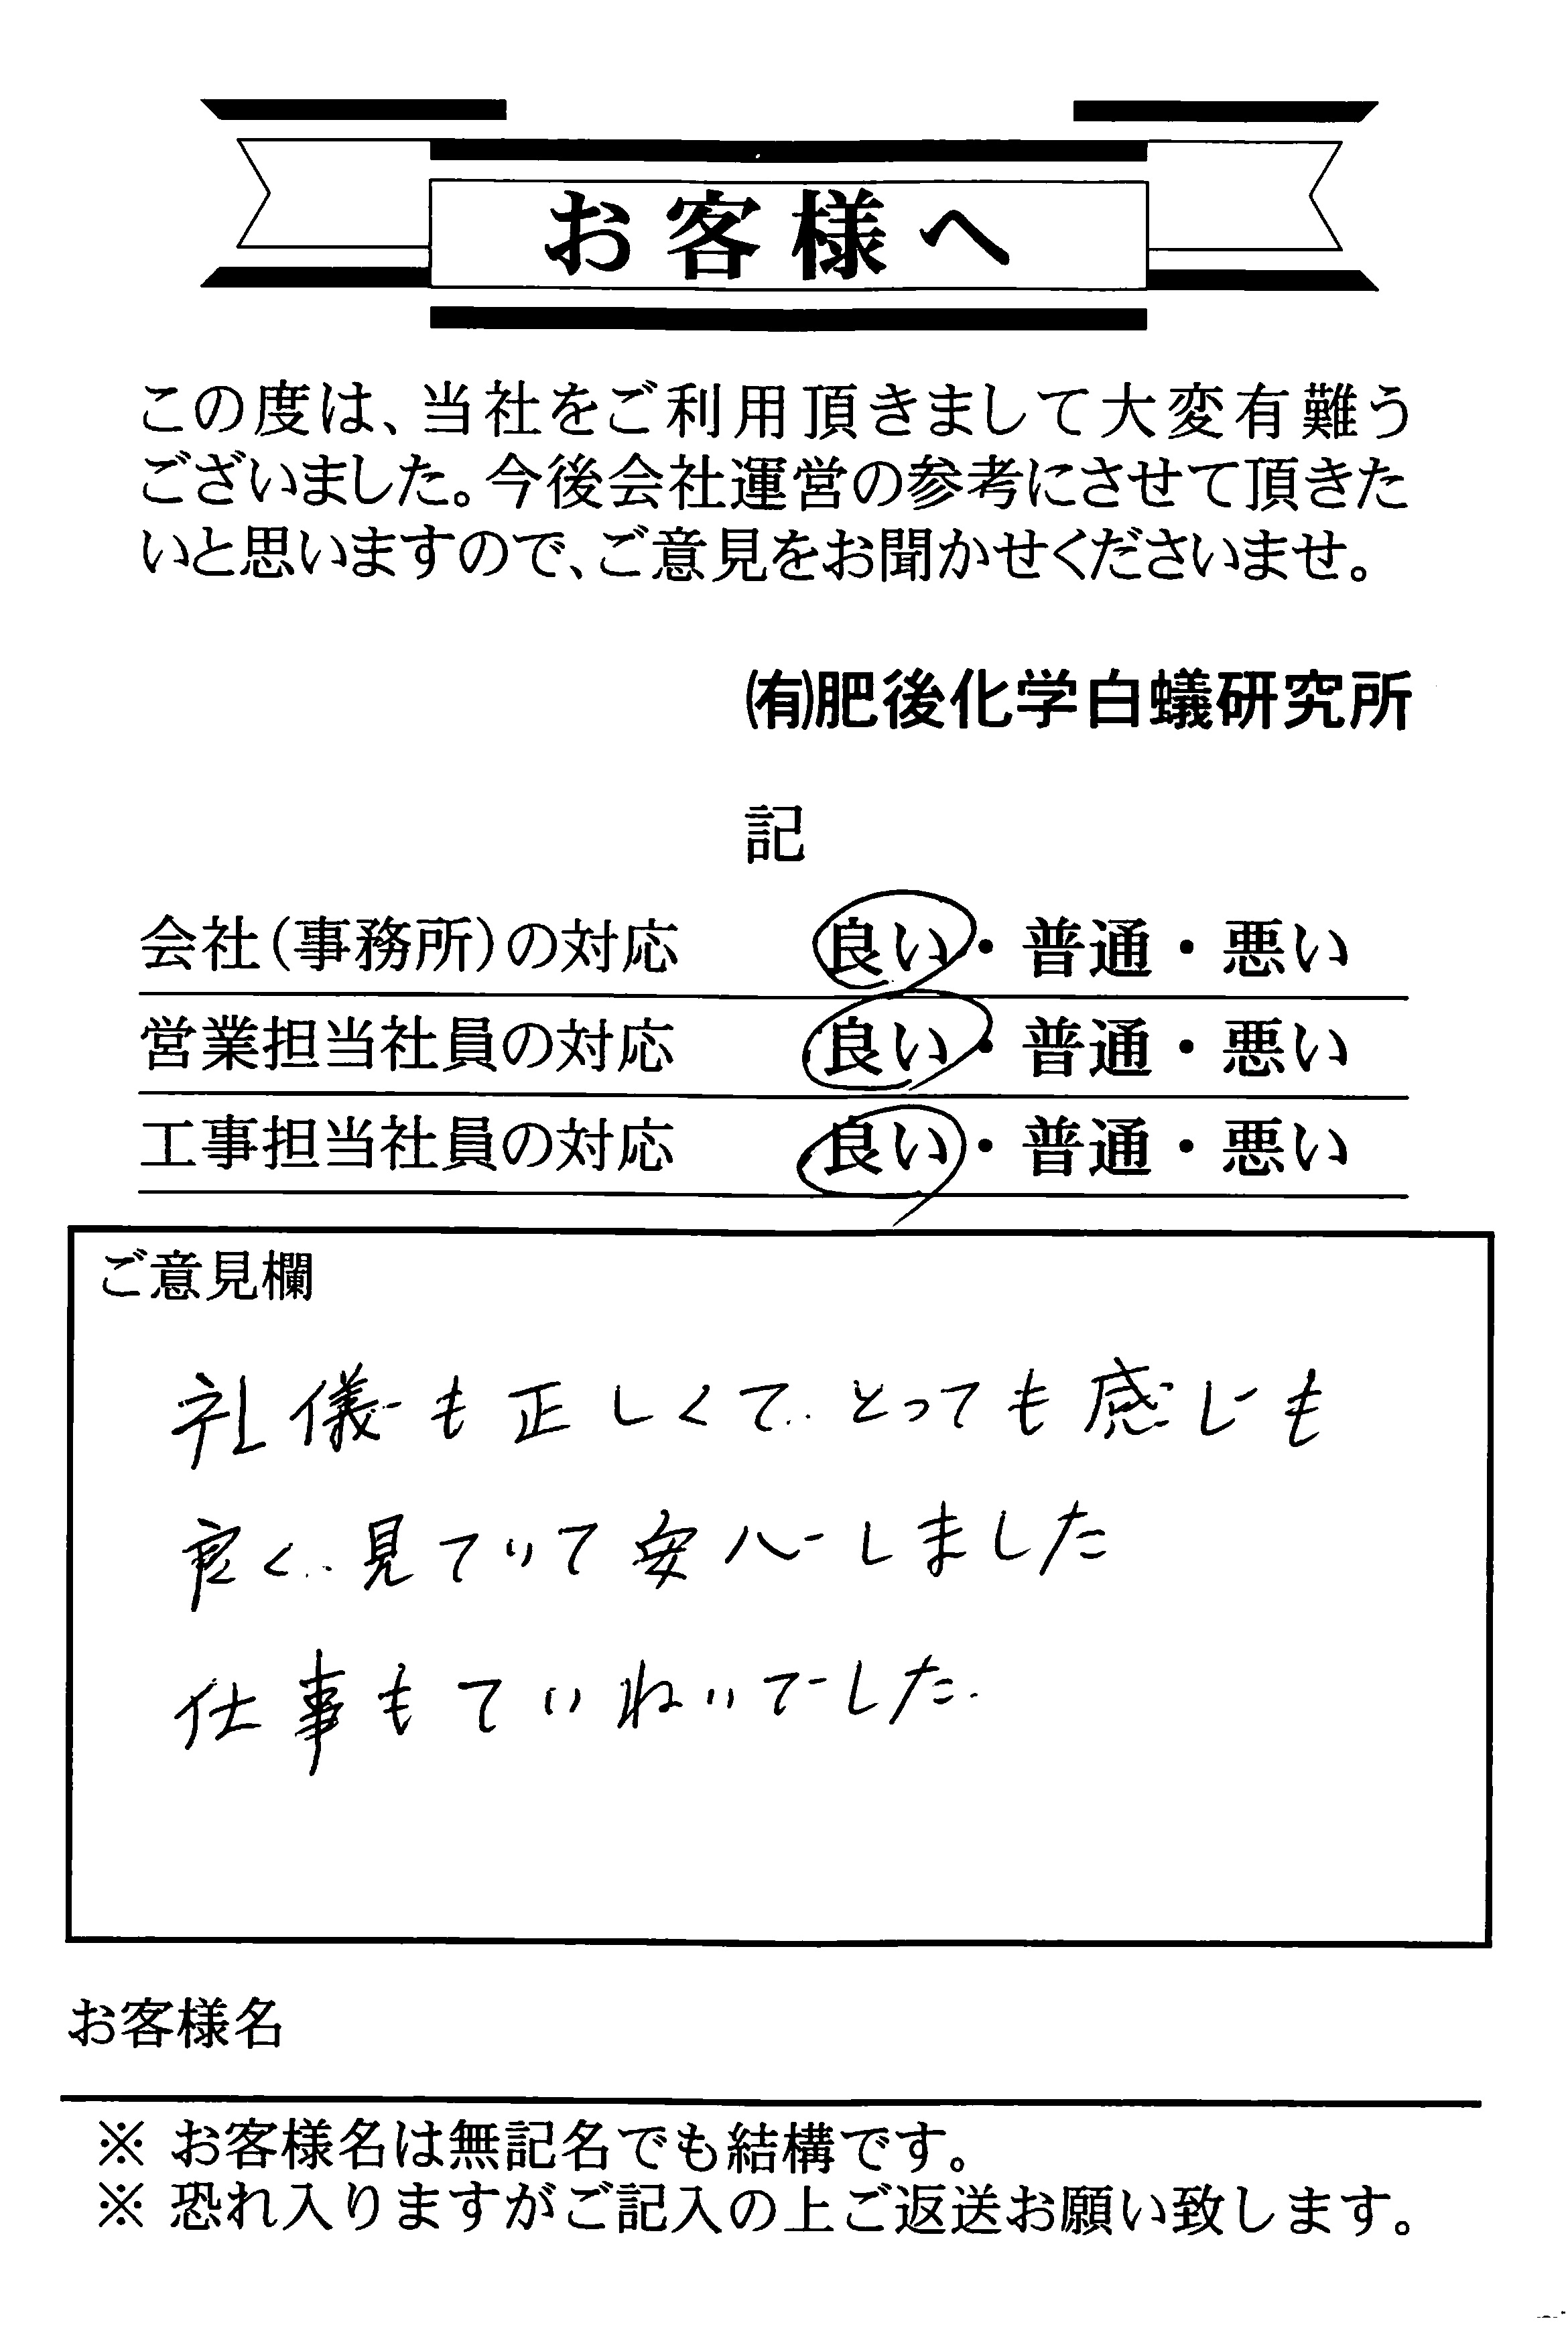 お客様へ
この度は、当社をご利用頂きまして大変有難う
ございました。今後会社運営の参考にさせて頂きた
いと思いますので、ご意見をお聞かせくださいませ。
㈲肥後化学白蟻研究所
記
会社(事務所)の対応 良い・普通・悪い
営業担当社員の対応 良い・普通・悪い
工事担当社員の対応 良い・普通・悪い
ご意見欄
礼儀も正しくて、とっても感じも
良く、見ていて安心しました
仕事もていねいでした。
お客様名
※ お客様名は無記名でも結構です。
※ 恐れ入りますがご記入の上ご返送お願い致します。